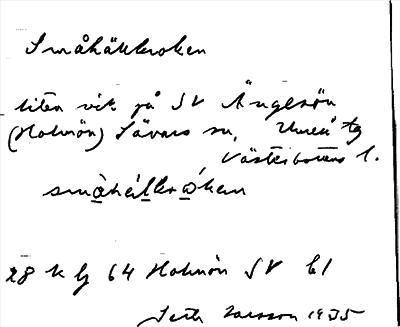 Småhällkroken
liten vik på SV Ängesön
(Holmön) Sävars sn, Umeå tg
Västerbottens l.
smàhä́llkrόken
28 k lj 64 Holmön SV bl
Seth Larsson 1935